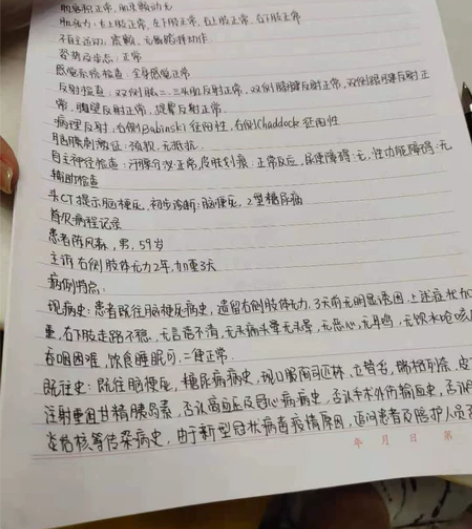 肌容积正常，肌束颤动无
肌张力：左上肢正常，左下肢正常，右上肢正常，右下肢正常
不自主运动，震颤，无舞蹈样动作
姿势及步态：正常
感觉系统检查：全身感觉正常
反射检查：双侧肱二、三头肌反射正常，双侧膝腱反射正常，双侧跟腱反射正
常，腹壁反射正常，提睾反射正常．
病理反射，右侧Babinski征阳性，右侧Chaddock征阳性
脑膜刺激征：颈软，无抵抗
自主神经检查：汗腺分泌：正常，皮肤划痕：正常反应，尿便障碍：无，性功能障碍：无
辅助检查
头CT提示脑梗死，初步诊断：脑梗死，2型糖尿病
首次病程记录
患者，男，59岁
主诉右侧肢体无力2年，加重3天
病例特点：
现病史：患者既往脑梗死病史，遗留右侧肢体无力，3天前无明显诱因，上述症状加
重，右下肢走路不稳，无言语不清，无头痛头晕，无恶心，无耳鸣，无饮水呛咳
吞咽困难，饮食睡眠可，二便正常．
既往史：既往脑梗死，糖尿病病史，现口服阿司匹林，立普妥，瑞格列奈，皮
注射重组甘精胰岛素，否认高血压及冠心病病史，否认手术外伤输血史，否认
炎结核等传染病史，由于新型冠状病毒疫情原因，追问患者及陪护人员
年 月 日 第